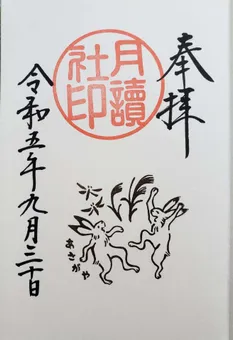 奉拝
月讀
社印
あさがや
令和五年九月三十日